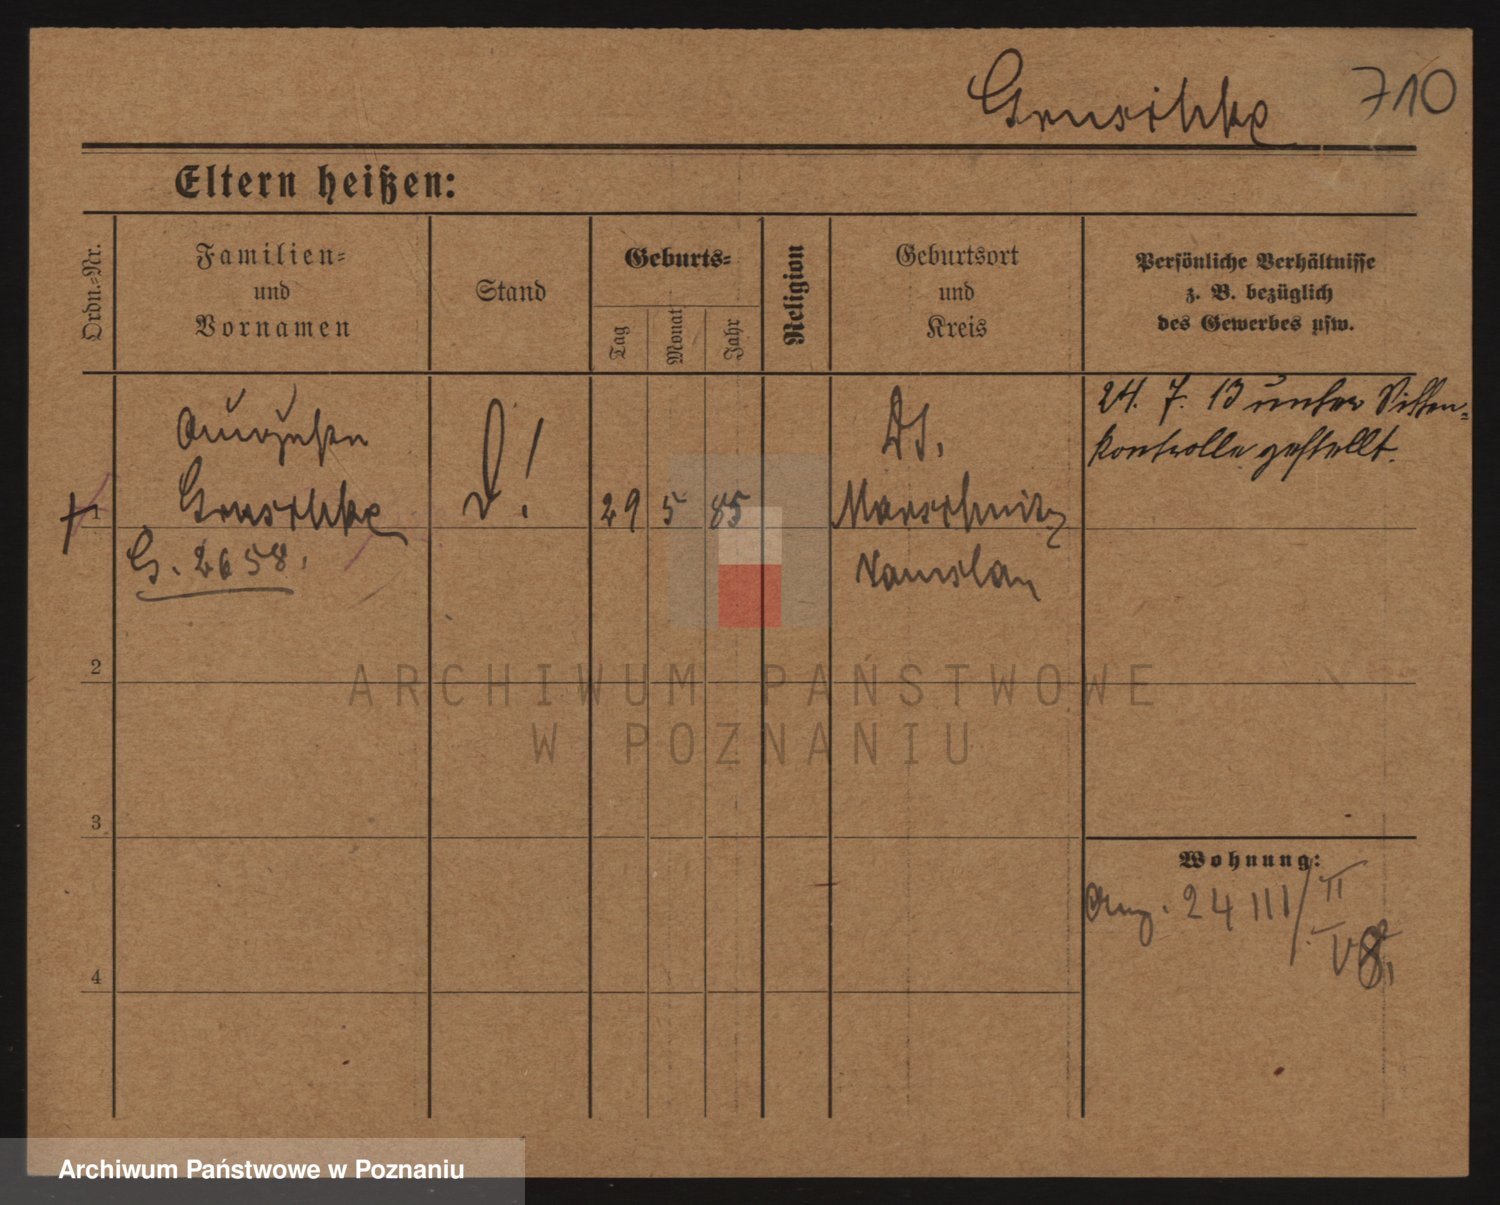 Gruschke 710
Eltern heißen:
Ordn.=Nr.
Familien=
und
Vornamen
Stand
Geburts=
Tag
Monat
Jahr
Religion
Geburtsort
und
Kreis
Persönliche Verhältnisse
z. B. bezüglich
des Gewerbes usw.
24. 7. 13 unter Sitten=
kontrolle gestellt.
Auguste
1 Gruschke 29 5 85 Marschwitz
G. 2658.
Namslau
2
ARCHIWUM PAŃSTWOWE
W POZNANIU
3
Wohnung:
24 III/II
4
Archiwum Państwowe w Poznaniu